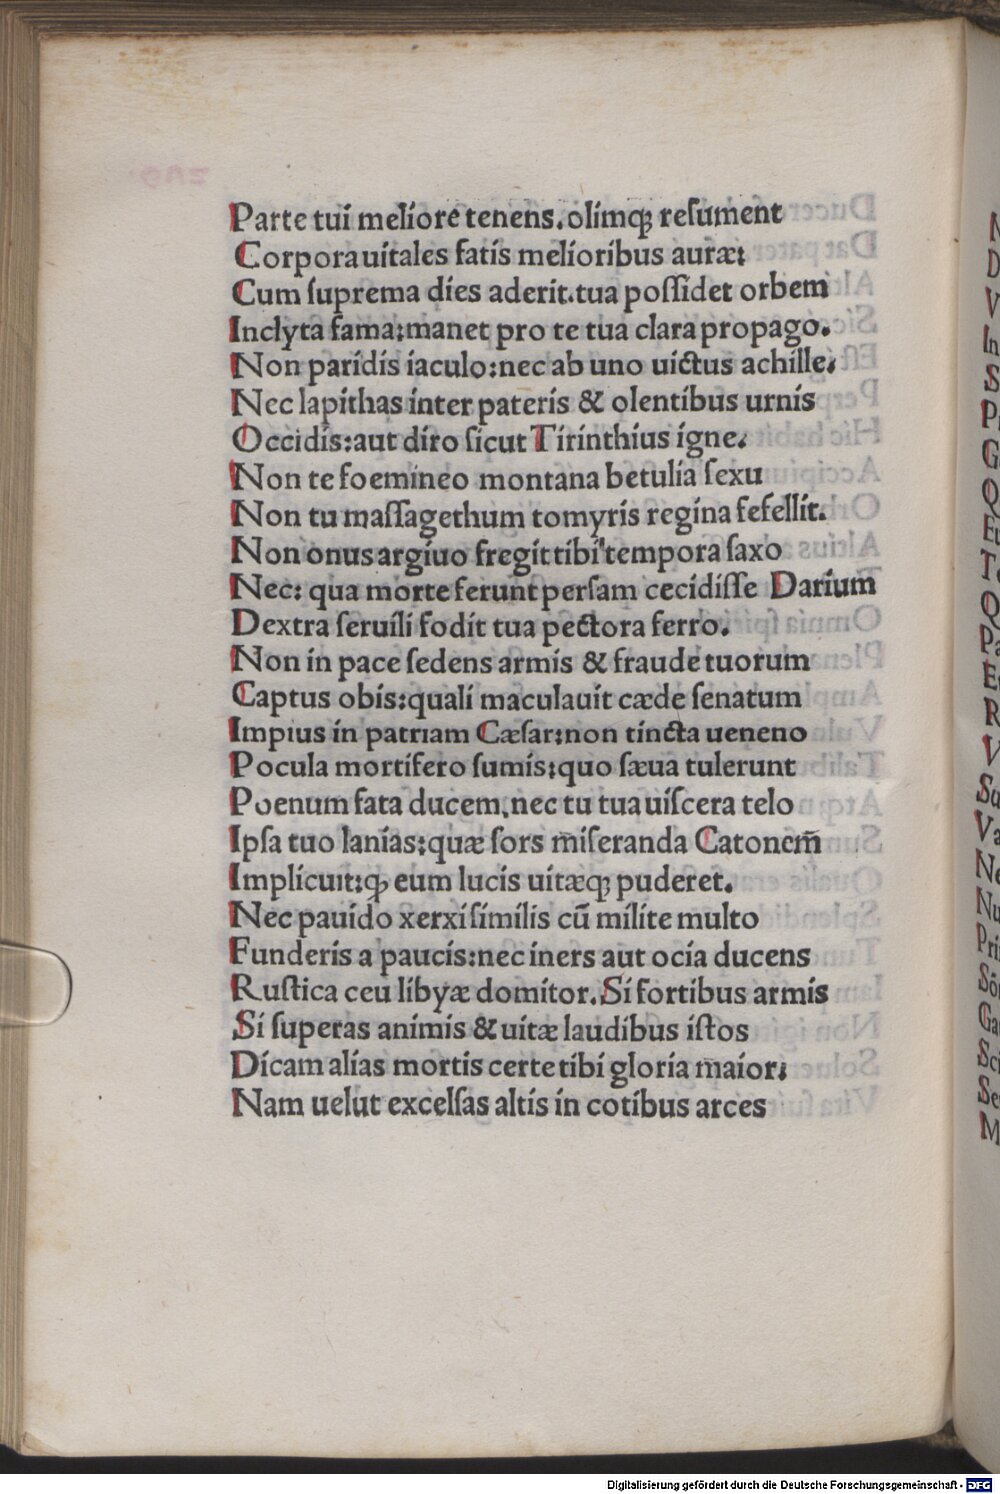 Parte tui meliore tenens. olimqꝫ reſument
Corpora uitales fatis melioribus auræ:
Cum ſuprema dies aderit. tua poſſidet orbem
Inclyta fama: manet pro te tua clara propago.
Non paridis iaculo: nec ab uno uictus achille.
Nec lapithas inter pateris & olentibus urnis
Occidis: aut diro ſicut Tirinthius igne.
Non te foemineo montana betulia ſexu
Non tu maſſagethum tomyris regina fefellit.
Non onus argiuo fregit tibi tempora ſaxo
Nec: qua morte ferunt perſam cecidiſſe Darium
Dextra ſeruili fodit tua pectora ferro.
Non in pace ſedens armis & fraude tuorum
Captus obis: quali maculauit cæde ſenatum
Impius in patriam Cæſar: non tincta ueneno
Pocula mortifero ſumis: quo ſæua tulerunt
Poenum fata ducem. nec tu tua uiſcera telo
Ipſa tuo lanias: quæ ſors miſeranda Catonem̄
Implicuit: qꝫ eum lucis uitæqꝫ puderet.
Nec pauido xerxi ſimilis cū milite multo
Funderis a paucis: nec iners aut ocia ducens
Ruſtica ceu libyæ domitor. Si fortibus armis
Si ſuperas animis & uitæ laudibus iſtos
Dicam alias mortis certe tibi gloria maior:
Nam uelut excelſas altis in cotibus arces
Digitalisierung gefördert durch die Deutsche Forschungsgemeinschaft - DFG